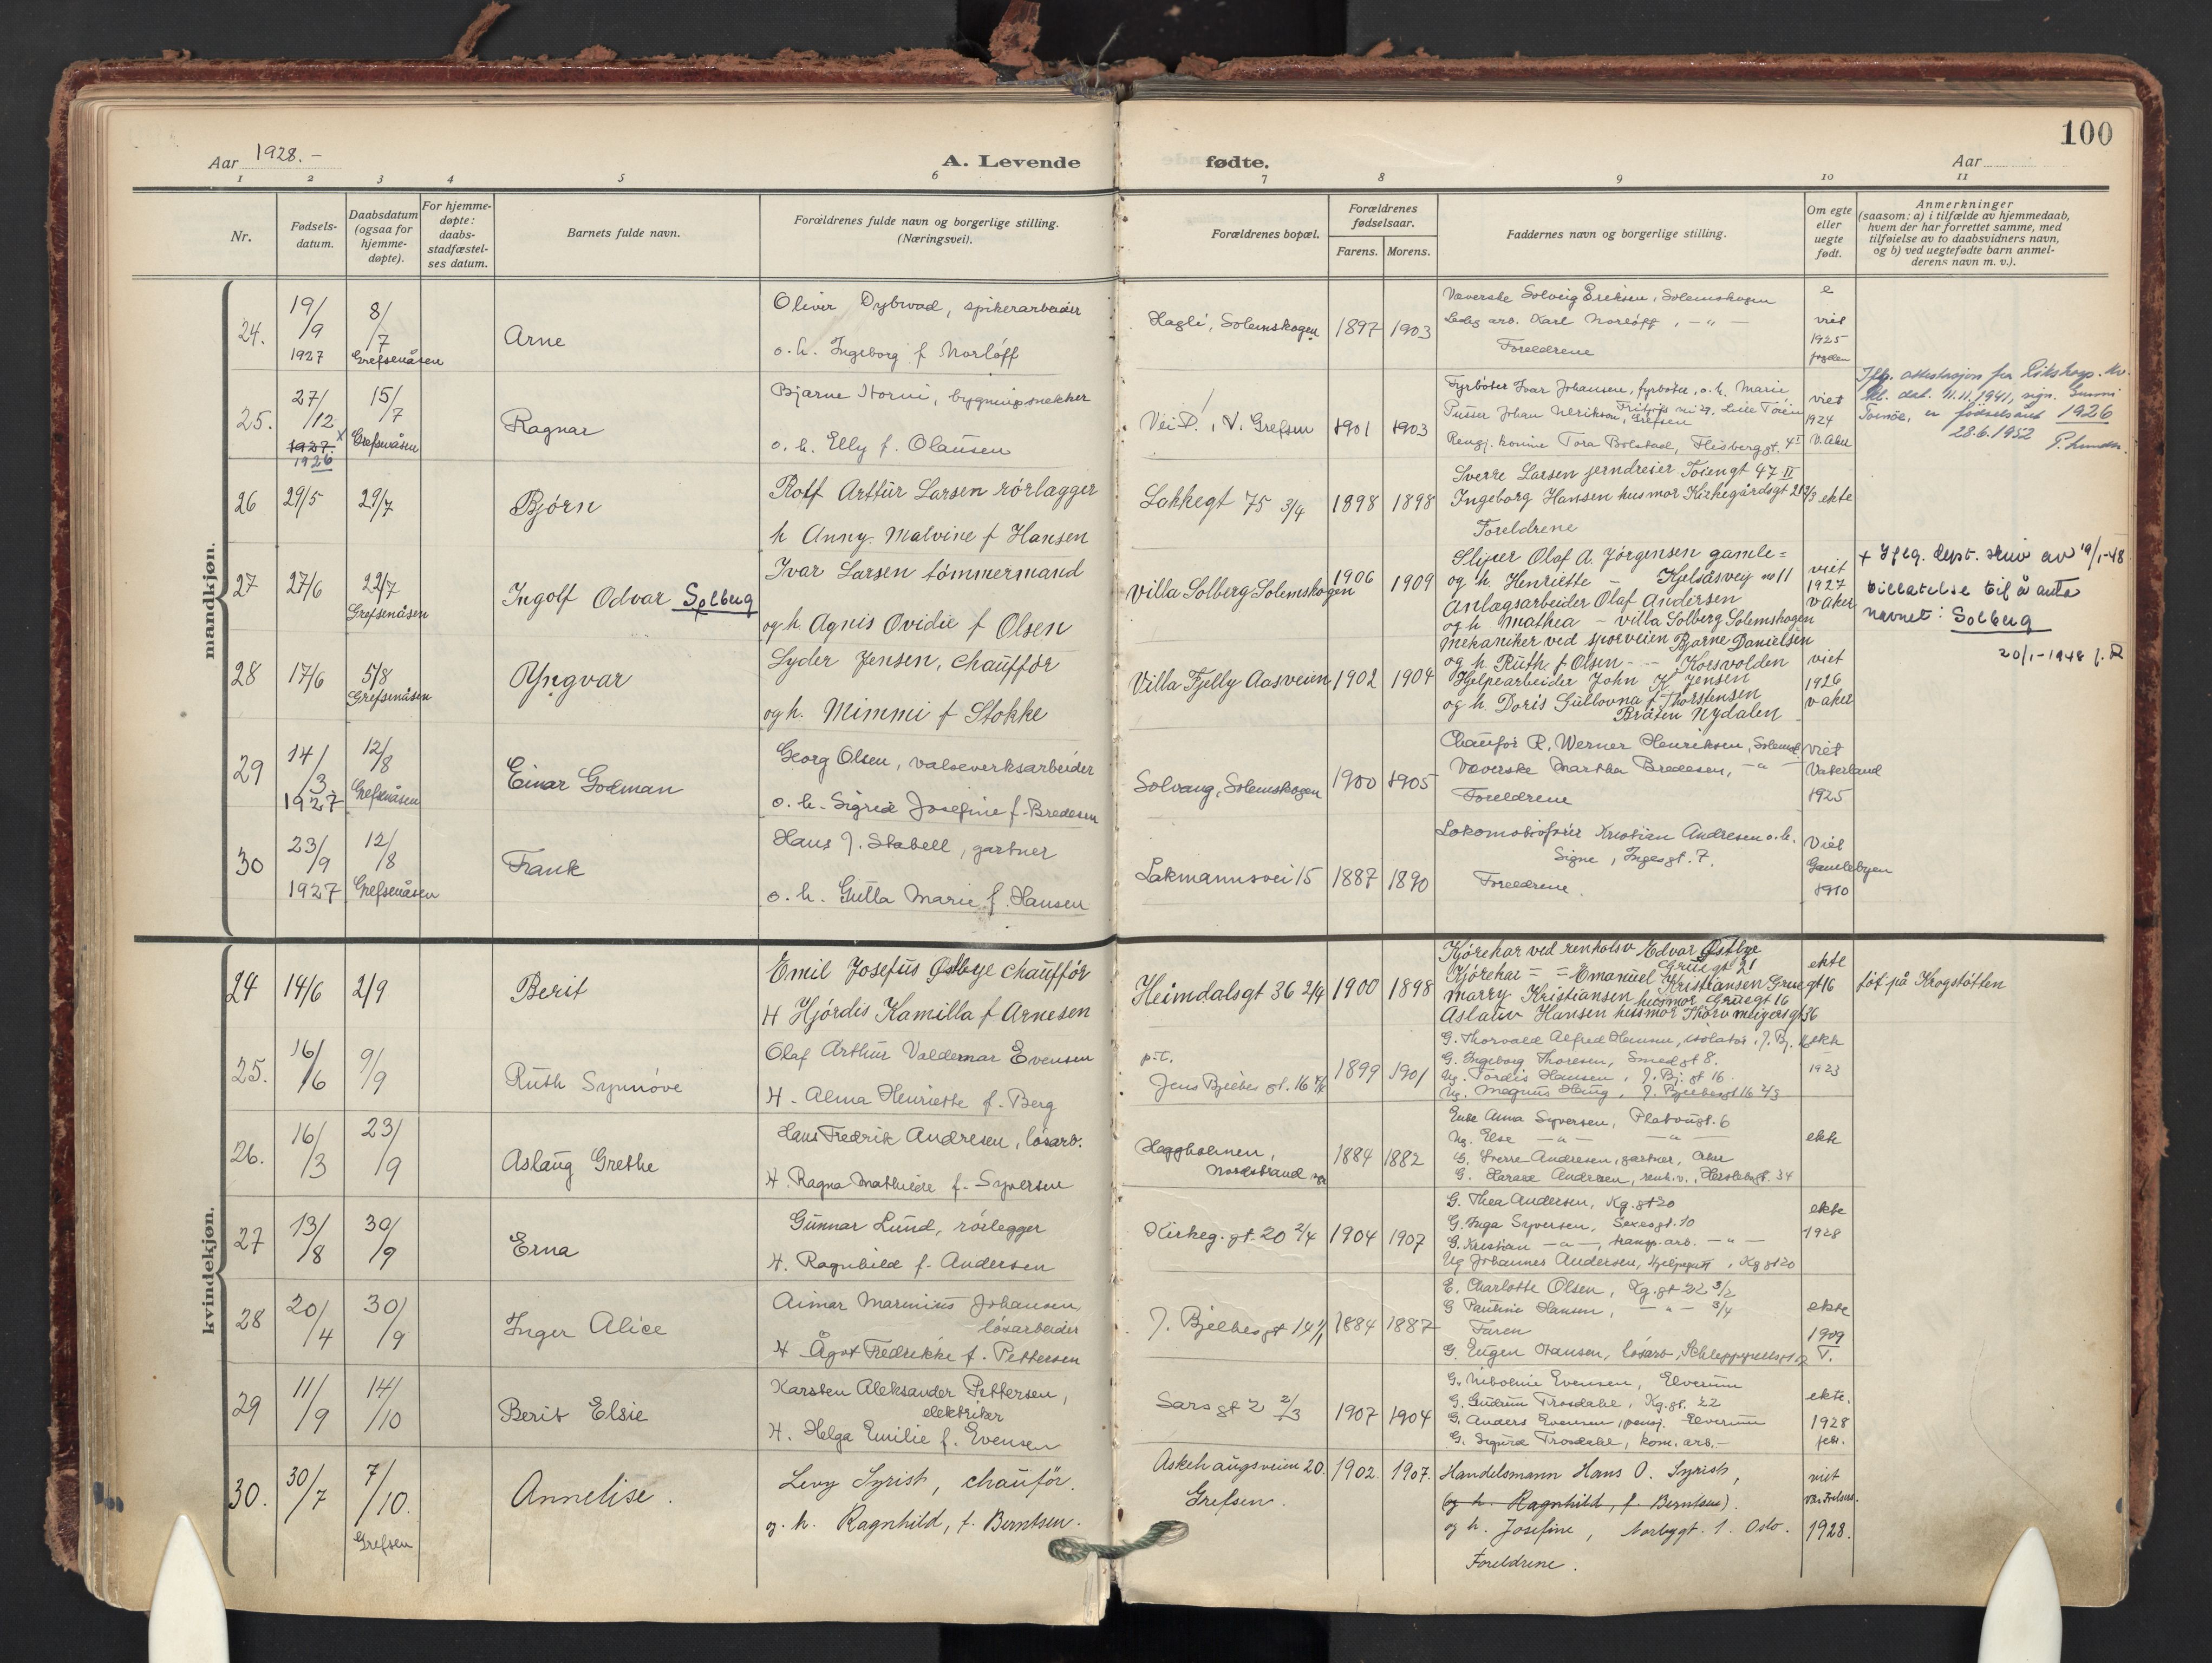 100
Aar 1928.-
A. Levende fødte.
Aar
1 2 3 4 5 6 7 8 9 10 11
Nr.
Fødsels-
datum.
Daabsdatum
(ogsaa for
hjemme-
døpte).
For hjemme-
døpte:
daabs-
stadfæstel-
ses datum.
Barnets fulde navn.
Forældrenes fulde navn og borgerlige stilling.
(Næringsvei).
Forældrenes bopæl.
Forældrenes
fødselsaar.
Farens. Morens.
Faddernes navn og borgerlige stilling.
Om egte
eller
uegte
født.
Anmerkninger
(saasom: a) i tilfælde av hjemmedaab,
hvem der har forrettet samme, med
tilføielse av to daabsvidners navn,
og b) ved uegtefødte barn anmel-
derens navn m. v.).
mandkjøn.
24.
19/9
1927
8/7
Grefsenåsen
Arne
Oliver Dybwad, spikerarbeider
o. h. Ingeborg f Norløff
Hagli, Solemskogen
1897 1903
Væverske Solveig Eriksen, Solemskogen
Ledig arb. Karl Norløff, - " -
Foreldrene
e
viet
1925
25.
27/12
1927. x
1926
15/7
Grefsenåsen
Ragnar
Bjarne Horni, bygningssnekker
o. h. Elly f. Olausen
Vei D., V. Grefsen
1901 1903
Fyrbøter Ivar Johansen, fyrbøter, o. h. Marie
Pusser Johan Ulrikson, Grefsen
Rengj. konne Tora Bolstad, Heisberggt. 4 I
viet
1924
V. Aker
Iflg. attestasjon fra Rikshosp. Kv.
kl. dat. 11.11.1941, sign. Gunni
er fødselsåret 1926
28.6.1952
26
29/5
29/7
Bjørn
Rolf Arthur Larsen rørlægger
h Anny. Malvine f Hansen
Lakkegt 75 3/4
1898 1898
Sverre Larsen jerndreier Tøiengt 47 II
Ingeborg Hansen husmor Kirkegårdsgt 21 2/3
Foreldrene
ekte
27
27/6
22/7
Grefsenåsen
Ingolf Odvar Solberg
Ivar Larsen tømmermand
og h Agnis Ovidie f Olsen
Villa Solberg Solemskogen
1906 1909
Sliper Olaf A. Jørgensen gamle=
og h. Henriette - Kjelsåsveg no 11
Anlægsarbeider Olaf Andersen
og h mathea - villa Solberg Solemskogen
viet
1927
V aker
+ Iflg. dept. skriv av 19/1-48
tillatelse til å anta
navnet: Solberg
20/1-1948
28
17/6
5/8
Grefsenåsen
Yngvar
Lyder Jensen, chauffør
og h. Mimmi f Stokke
Villa Fjelly Aasveien
1902 1904
mekaniker ved sporveien Bjarne Danielsen
og h. Ruth f Olsen - - Korsvolden
Hjelpearbeider John K Jensen
og h. Doris Gullovna f Thorstensen
Bråten Nydalen
viet
1926
V aker
29
14/3
1927
12/8
Grefsenåsen
Einar Godman
Georg Olsen, valseverksarbeider
o. h. Sigrid Josefine f. Bredesen
Solvang, Solemskogen
1900 1905
Chauför R. Werner Henriksen, Solemsk.
Væverske Martha Bredesen, - " -
Foreldrene
viet
Vaterland
1925
30
23/9
1927
12/8
Grefsenåsen
Frank
Hans J. Stabell, gartner
o. h. Gutta Marie f. Hansen
Lakmannsvei 15
1887 1890
Lokomotivfører Kristian Andresen o. h.
Signe, Inges gt. 7.
Foreldrene.
Viet
Gamlebyen
1910
kvindekjøn.
24
14/6
2/9
Berit
Emil Josefus Østbye chauffør
H Hjørdis Kamilla f Arnesen
Heimdalsgt 36 2/4
1900 1898
Kjørekar ved renholsv Edvar Østbye
Gruegt 21
Kjørekar = = Emanuel Kristiansen Gruegt 16
marry Kristiansen husmor Gruegt 16
Aslaug Hansen husmor Thorv meyersgt 36
ekte
føt på Krogstøtten
25.
16/6
9/9
Ruth Synnøve
Olaf Arthur Valdemar Evensen
H. Alma Henriette f. Berg
p.t.
Jens Bjelbes gt. 16
1899 1901
G. Thorvald Alfred Hansen, isolatør, J. Bj.
G. Ingeborg Thoresen, Smed gt 8.
Ug. Tordis Hansen, J. Bj. gt 16
Ug. Magnus Haug, J. Bjelbesgt 16 2/3
ekte
1923
26.
16/3
23/9
Aslaug Grethe
Hans Fredrik Andresen, løsarb.
H. Ragna Mathilde f. Syversen
Heggholmen,
Nordstrand
1884 1882
Enke Anna Syversen, Platougt. 6
Ug. Else - " - - " -
G. Sverre Andresen, gartner, Aker
G. Harald Andresen, renh.v., Herslebsgt. 34
ekte
27
13/8
30/9
Erna
Gunnar Lund, rørlegger
H. Ragnhild f. Andersen
Kirkeg. gt. 20 2/4
1904 1907
G. Thea Andersen, Kg. gt 20
G. Inga Syversen, Sexesgt. 10
G. Kristian - " -, transp. arb. - " -
Ug Johannes Andersen, hjelpegutt, Kg gt 20
ekte
1928
28
20/4
30/9
Inger Alice
Aimar Marinius Johansen,
løsarbeider
H Ågot Fredrikke f. Pettersen
J. Bjelbesgt 14
1884 1887
E. Charlotte Olsen, Kg. gt 22 3/2
G Pauline Hansen, - " - 3/4
Faren
G. Eugen Hansen, løsarb, Schleppegrellsgt 12
ekte
1909
T.
29
11/9
14/10
Berit Elsie
Karsten Aleksander Pettersen,
elektriker
H. Helga Emilie f. Evensen
Sars gt 2 2/3
1907 1904
G. Niboline Evensen, Elverum
G. Gudrun Trosdahl, Kg. gt. 22
G. Anders Evensen, pensj. Elverum
G. Sigurd Trosdahl, kom. arb. -
ekte.
1928
febr.
30.
30/7
7/10.
Grefsen
Annelise.
Levy Syrist, chauför.
og. h. Ragnhild, f. Berntsen.
Askehaugsveien 20.
Grefsen.
1902. 1907.
Handelsmann Hans O. Syrist,
(og h. Ragnhild, f. Berntsen).
og h. Josefine, Norbygt. 1. Oslo.
Foreldrene.
viet
Vår Frelsers.
1928.